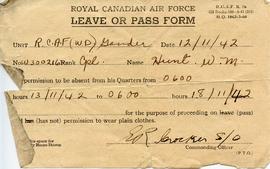 ROYAL CANADIAN AIR FORCE
LEAVE OR PASS FORM
UNIT R.C.A.F. (WD) Gander Date 12/11/42
No W300216 Rank Cpl. Name Hunt W. M.
permission to be absent from his Quarters from 0600
hours 13/11/42 to 0600 hours 18/11/42
for the purpose of proceeding on leave (pass)
(has not) permission to wear plain clothes.
S/O
Commanding Officer
(P.T.O.)